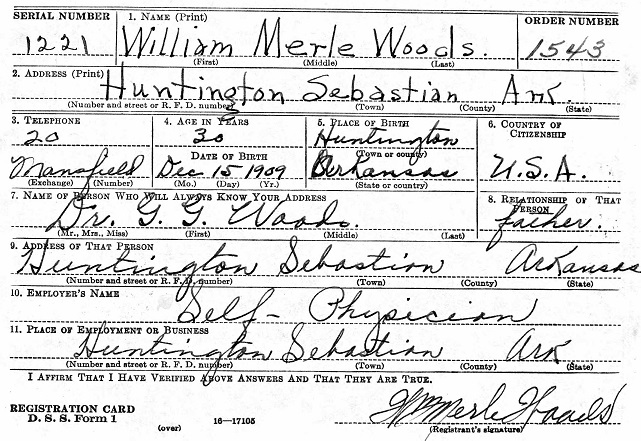 SERIAL NUMBER 1. NAME (Print) ORDER NUMBER
1221 William Merle Woods. 1543
(First) (Middle) (Last)
2. ADDRESS (Print)
Huntington Sebastian Ark.
(Number and street or R. F. D. number) (Town) (County) (State)
3. TELEPHONE 4. AGE IN YEARS 5. PLACE OF BIRTH 6. COUNTRY OF CITIZENSHIP
20 30 Huntington
DATE OF BIRTH (Town or county)
Mansfield Dec 15 1909 Arkansas U.S.A.
(Exchange) (Number) (Mo.) (Day) (Yr.) (State or country)
7. NAME OF PERSON WHO WILL ALWAYS KNOW YOUR ADDRESS 8. RELATIONSHIP OF THAT PERSON
Dr. G. G. Woods. father.
(Mr., Mrs., Miss) (First) (Middle) (Last)
9. ADDRESS OF THAT PERSON
Huntington Sebastian Arkansas
(Number and street or R. F. D. number) (Town) (County) (State)
10. EMPLOYER'S NAME
Self- Physician
11. PLACE OF EMPLOYMENT OR BUSINESS
Huntington Sebastian Ark
(Number and street or R. F. D. number) (Town) (County) (State)
I AFFIRM THAT I HAVE VERIFIED ABOVE ANSWERS AND THAT THEY ARE TRUE.
REGISTRATION CARD Wm Merle Woods
D. S. S. Form 1 (over) 16—17105 (Registrant's signature)